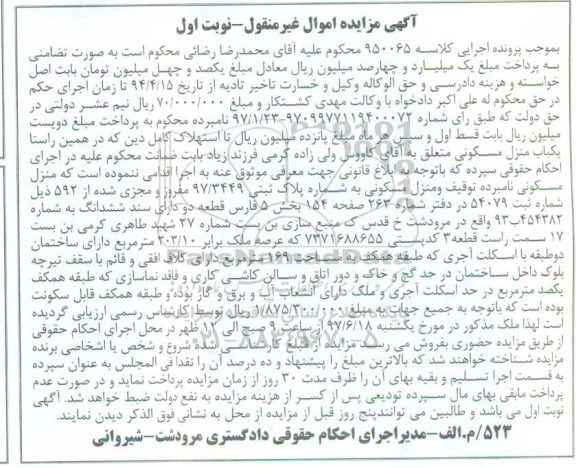 آگهی مزایده اموال غیرمنقول-نوبت اول
بموجب پرونده اجرایی کلاسه ۹۵۰۰۶۵ محکوم علیه آقای محمدرضا رضائی محکوم است به صورت تضامنی
به پرداخت مبلغ یک میلیارد و چهارصد میلیون ریال معادل مبلغ یکصد و چهل میلیون تومان بابت اصل
خواسته و هزینه دادرسی و حق الوکاله وکیل و خسارت تاخیر تادیه از تاریخ ۹۴/۴/۱۵ تا زمان اجرای حکم
در حق محکوم له علی اکبر دادخواه با وکالت مهدی کشتکار و مبلغ ۷۰/۰۰۰/۰۰۰ ریال نیم عشر دولتی در
حق دولت که طبق رای شماره ۹۷۰۹۹۷۷۱۱۹۴۰۰۰۷۲-۹۷/۱/۲۳ نامبرده محکوم به پرداخت مبلغ دویست
میلیون ریال بابت قسط اول و سپس هر ماه مبلغ پانزده میلیون ریال تا استهلاک کامل دین که در همین راستا
یکباب منزل مسکونی متعلق به آقای کاووس ولی زاده کرمی فرزند زیاد بابت ضمانت محکوم علیه در اجرای
احکام حقوقی سپرده که باتوجه به ابلاغ قانونی جهت معرفی موثوق عنه به اجرا اقدامی ننموده است که منزل
مسکونی نامبرده توقیف ومنزل مسکونی به شماره پلاک ثبتی ۹۷/۳۴۴۹ مفروز و مجزی شده از ۵۹۲ ذیل
شماره ثبت ۵۴۰۷۹ در دفتر شماره ۲۶۳ صفحه ۱۵۴ بخش ۵ فارس قطعه دو دارای سند ششدانگ به شماره
۴۵۴۳۸۲ب۹۳ واقع در مرودشت خ قدس ک منبع سازی بن بست شماره ۲۷ شهید طاهری کرمی بن بست
۱۷ سمت راست قطعه۳ کدپستی ۷۳۷۱۶۸۸۶۵۵ که عرصه ملک برابر ۳۰۳/۱۰ مترمربع دارای ساختمان
دوطبقه با اسکلت آجری که طبقه همکف به مساحت ۱۶۹ مترمربع دارای کلاف افقی و قائم با سقف تیرچه
بلوک داخل ساختمان در حد گچ و خاک و دور اتاق و سالن کاشی کاری و فاقد نماسازی که طبقه همکف
یکصد مترمربع در حد اسکلت آجری و ملک دارای انشعاب آب و برق و گاز بوده و طبقه همکف قابل سکونت
بوده است که باتوجه به جمیع جهات به مبلغ ۱/۸۷۵/۳۰۰/۰۰۰ ریال توسط کارشناس رسمی ارزیابی گردیده
است لهذا ملک مذکور در مورخ یکشنبه ۹۷/۶/۱۸ از ساعت ۹ صبح الی ۱۲ ظهر در محل اجرای احکام حقوقی
از طریق مزایده حضوری بفروش می رسد. مزایده از مبلغ کارشناسی شده شروع و شخص یا اشخاصی برنده
مزایده شناخته خواهند شد که بالاترین مبلغ را پیشنهاد و ده درصد آن را نقدا فی المجلس به عنوان سپرده
به قسمت اجرا تسلیم و بقیه بهای آن را ظرف مدت ۳۰ روز از زمان مزایده پرداخت نماید و در صورت عدم
پرداخت مابقی بهای مال سپرده تودیعی پس از کسر از هزینه مزایده به نفع دولت ضبط خواهد شد. آگهی
نوبت اول می باشد و طالبین می توانندپنج روز قبل از مزایده از محل به نشانی فوق الذکر دیدن نمایند.
۵۲۳/م.الف-مدیراجرای احکام حقوقی دادگستری مرودشت-شیروانی